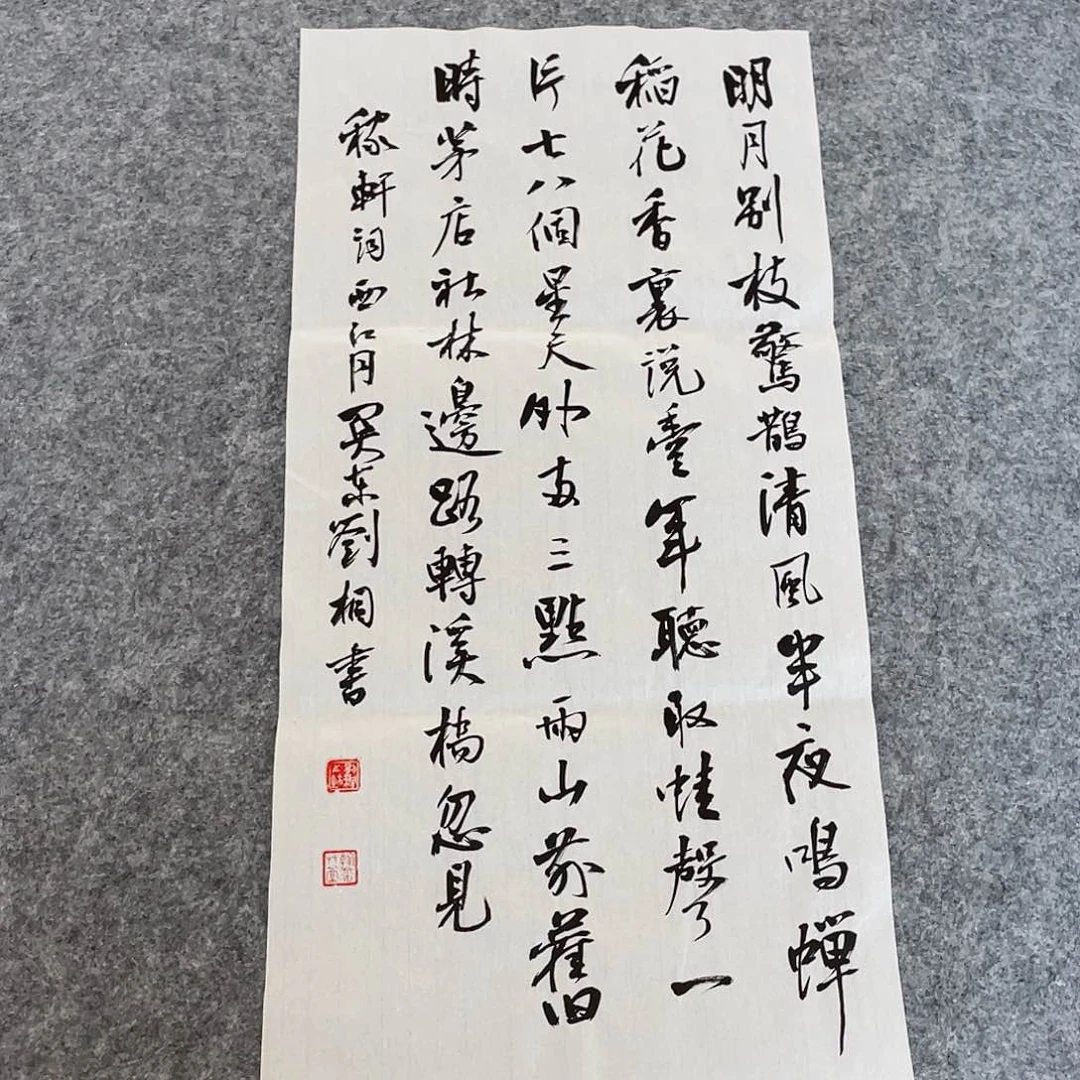 明月别枝驚鵲清風半夜鳴蟬
稻花香裏説豐年聽取蛙聲一
片七八個星天外兩三點雨山前舊
時茅店社林邊路轉溪橋忽見
稼軒詞西江月關東劉桐書